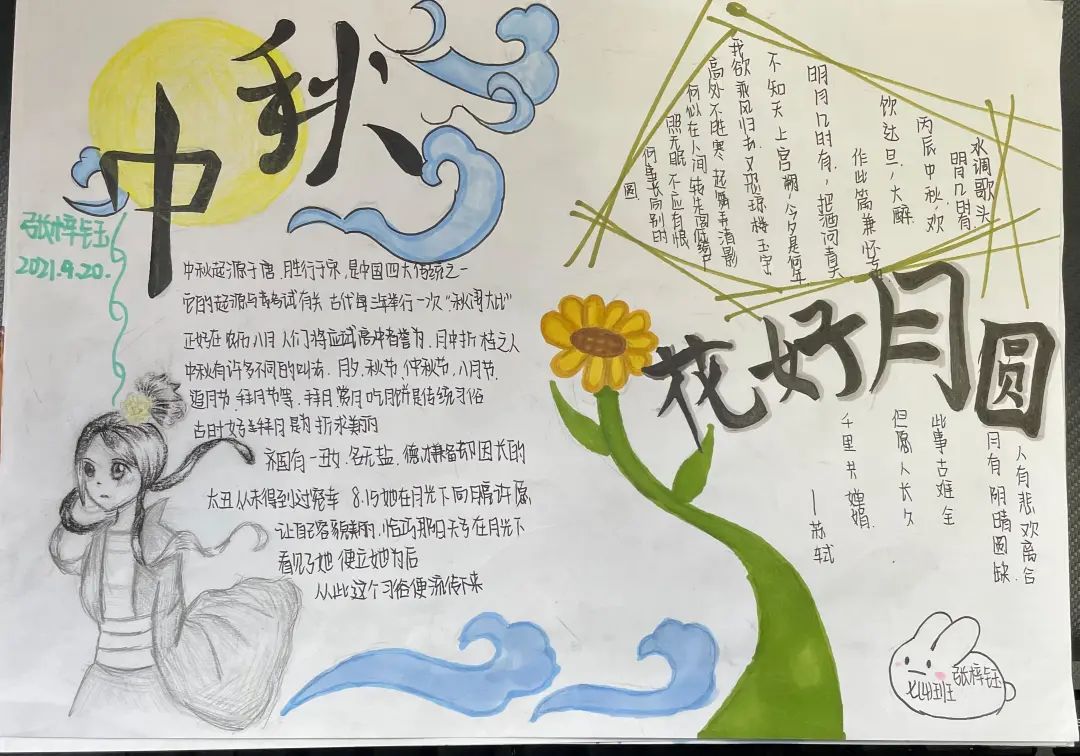 中秋
张梓钰
2021.9.20.
中秋起源于唐、胜行于宋,是中国四大传统之一
它的起源与考试有关 古代每年举行一次“秋闱大比”
正好在农历八月 人们将应试高中者誉为、月中折桂之人
中秋有许多不同的叫法、月夕、秋节、仲秋节、八月节、
追月节、拜月节等、拜月赏月吃月饼是传统习俗
古时女拜月是为祈求美丽
齐国有一丑女、名无盐、德才兼备却因长的
太丑从未得到过宠幸 8.15她在月光下向月许愿
让自己容貌美丽、恰巧那日天子在月光下
看见了她 便立她为后
从此这个习俗便流传下来
水调歌头
明月几时有
丙辰中秋,欢
饮达旦,大醉
作此篇兼怀
明月几时有,把酒问青天
不知天上宫阙,今夕是何年
我欲乘风归去 又恐琼楼玉宇
高处不胜寒 起舞弄清影
何似在人间 转朱阁低绮户
照无眠 不应有恨
何事长向别时
圆
花好月圆
人有悲欢离合
月有阴晴圆缺
此事古难全
但愿人长久
千里共婵娟
——苏轼
张梓钰